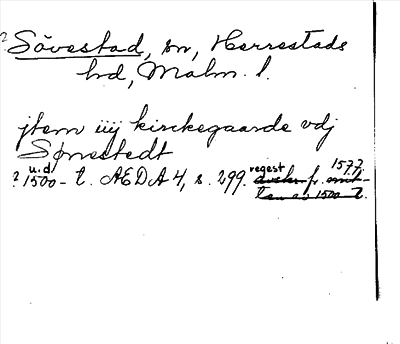 ? Sövestad, sn, Herrestads
hd, Malm. l.
jtem iiij kirckegaarde vdj
Sønestedt
? u.d. 1500-t. AEDA 4, s. 299. regest fr. 1577
1500 t.